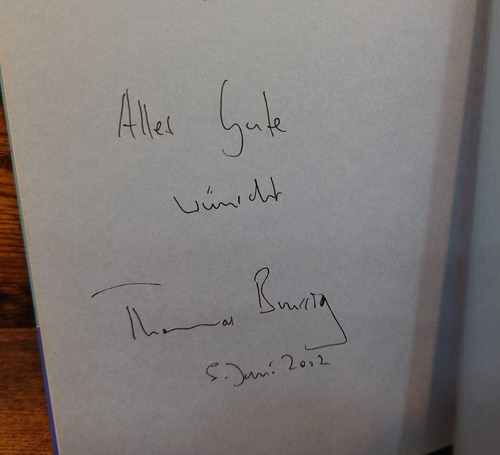 Alles Gute
wünscht
Thomas Brussig
5. Juni 2012